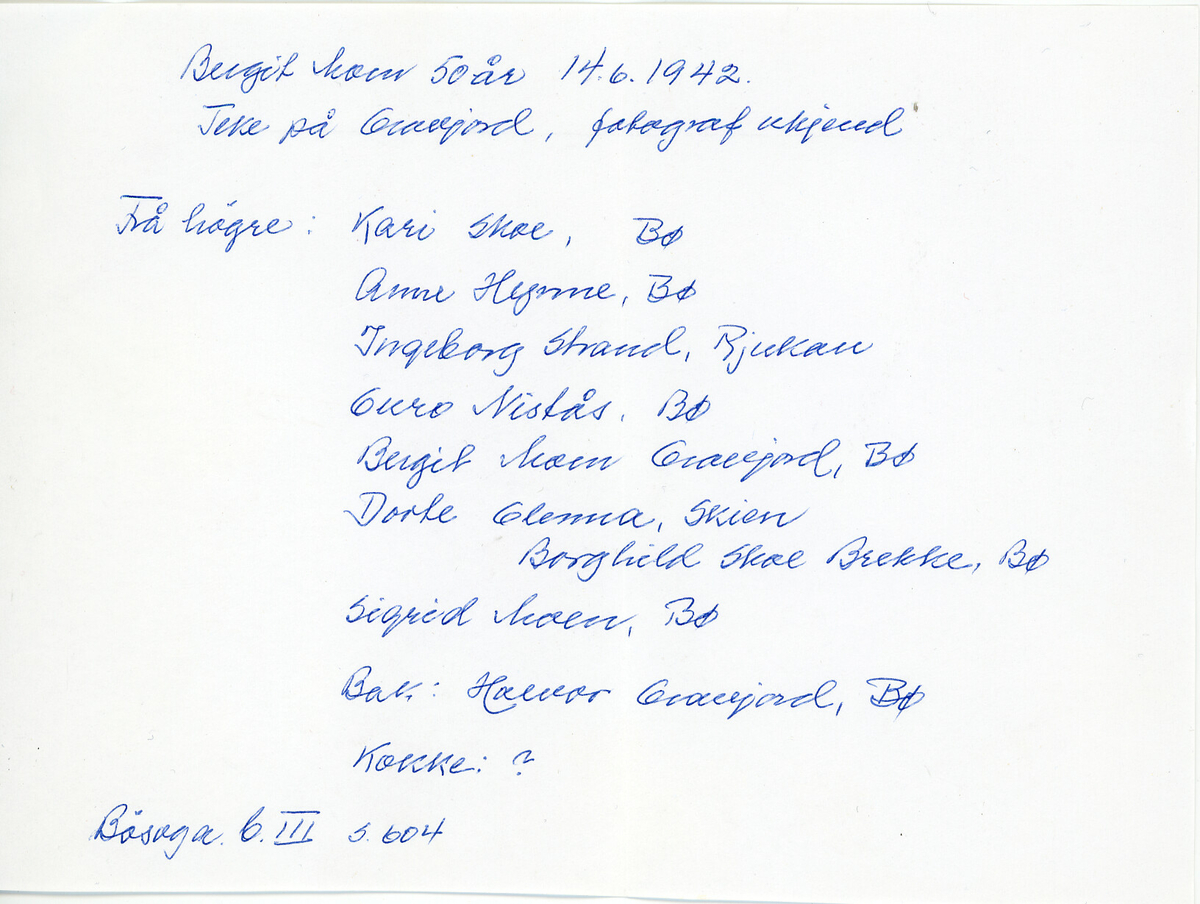 Bergit Moen 50 år 14.6.1942.
Teke på Gravejord, fotograf ukjend
Frå högre: Kari Skoe, Bø
Anne Hegnne, Bø
Ingeborg Strand, Rjukan
Guro Nistås. Bø
Bergit Moen Gravejord, Bø
Dorte Glenna, Skien
Borghild Skoe Brekke, Bø
Sigrid Moen, Bø
Bak: Halvor Gravejord, Bø
Kokke: ?
Bösoga. b. III s. 604